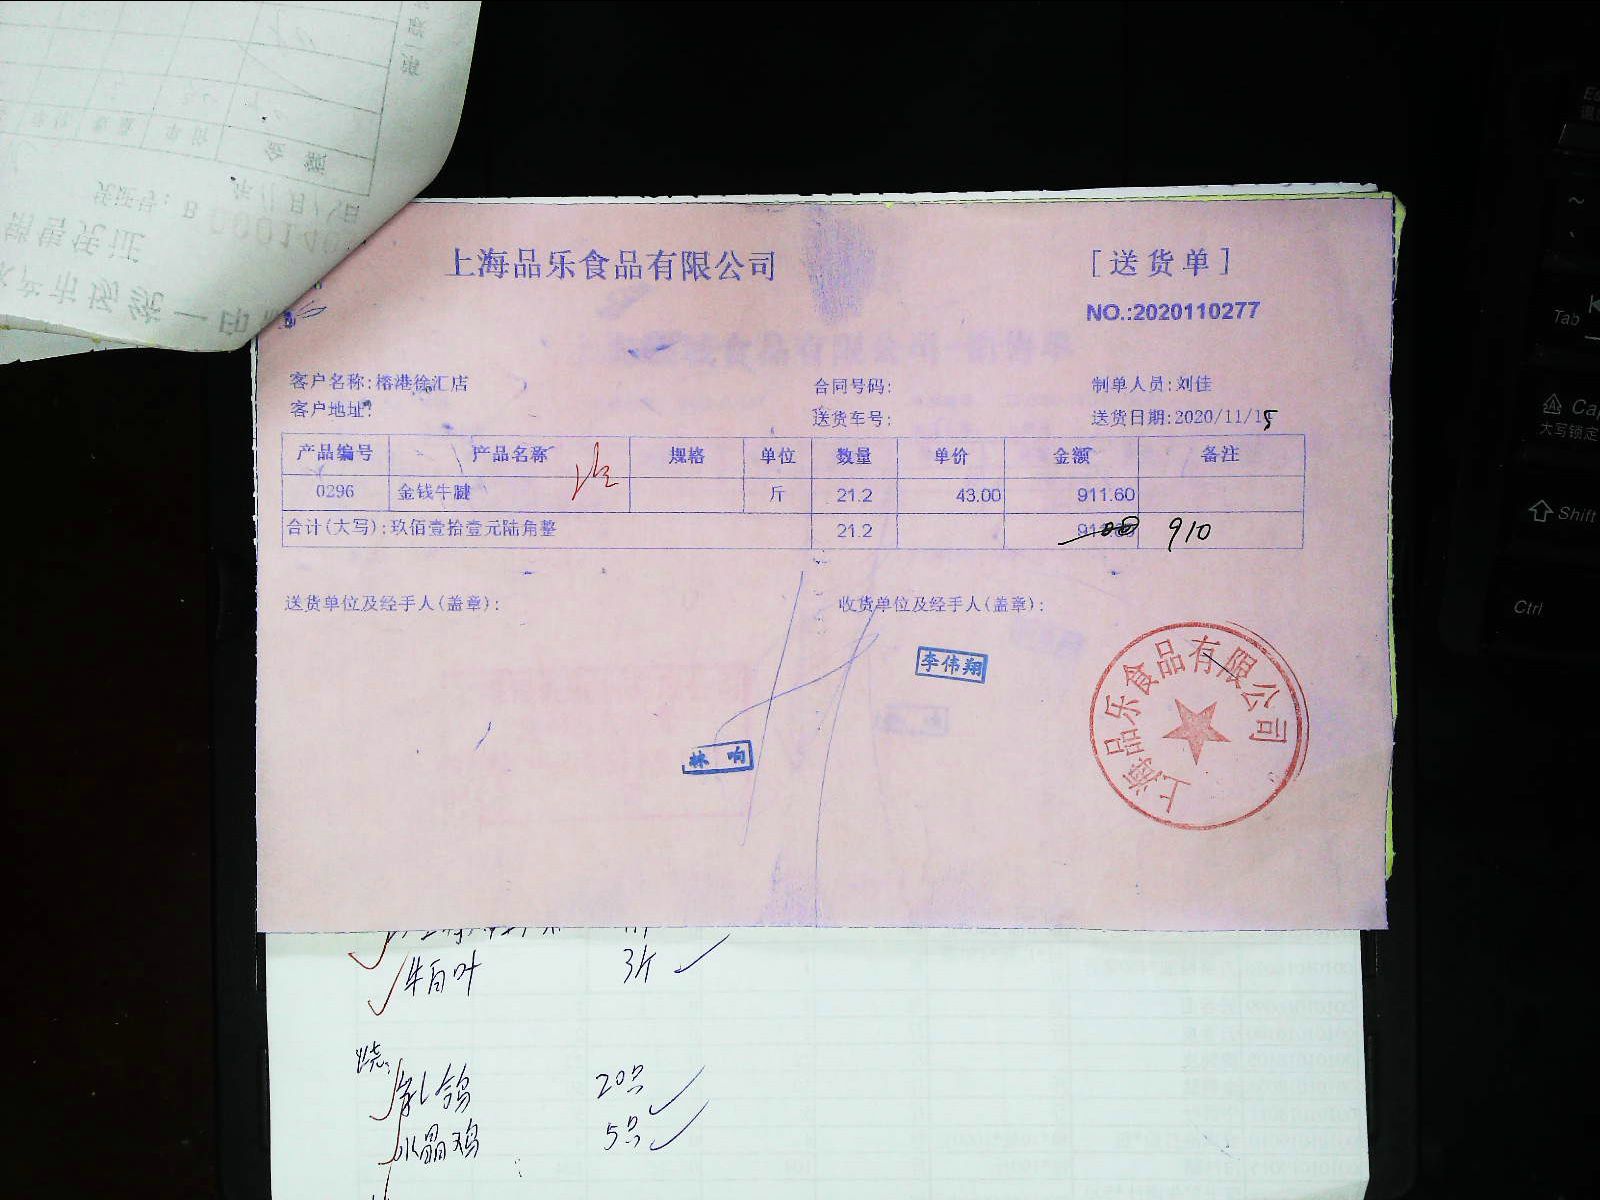 上海品乐食品有限公司
[送货单]
NO.:2020110277
客户名称:榕港徐汇店
合同号码:
制单人员:刘佳
客户地址:
送货车号:
送货日期:2020/11/15
产品编号 产品名称 规格 单位 数量 单价 金额 备注
0296 金钱牛腱 斤 21.2 43.00 911.60
合计(大写):玖佰壹拾壹元陆角整 21.2 910
送货单位及经手人(盖章):
收货单位及经手人(盖章):
李伟翔
林响
上海品乐食品有限公司
牛百叶 3斤
烧:
乳鸽 20只
水晶鸡 5只
金额
销售凭证
Tab
Shift
Ctrl